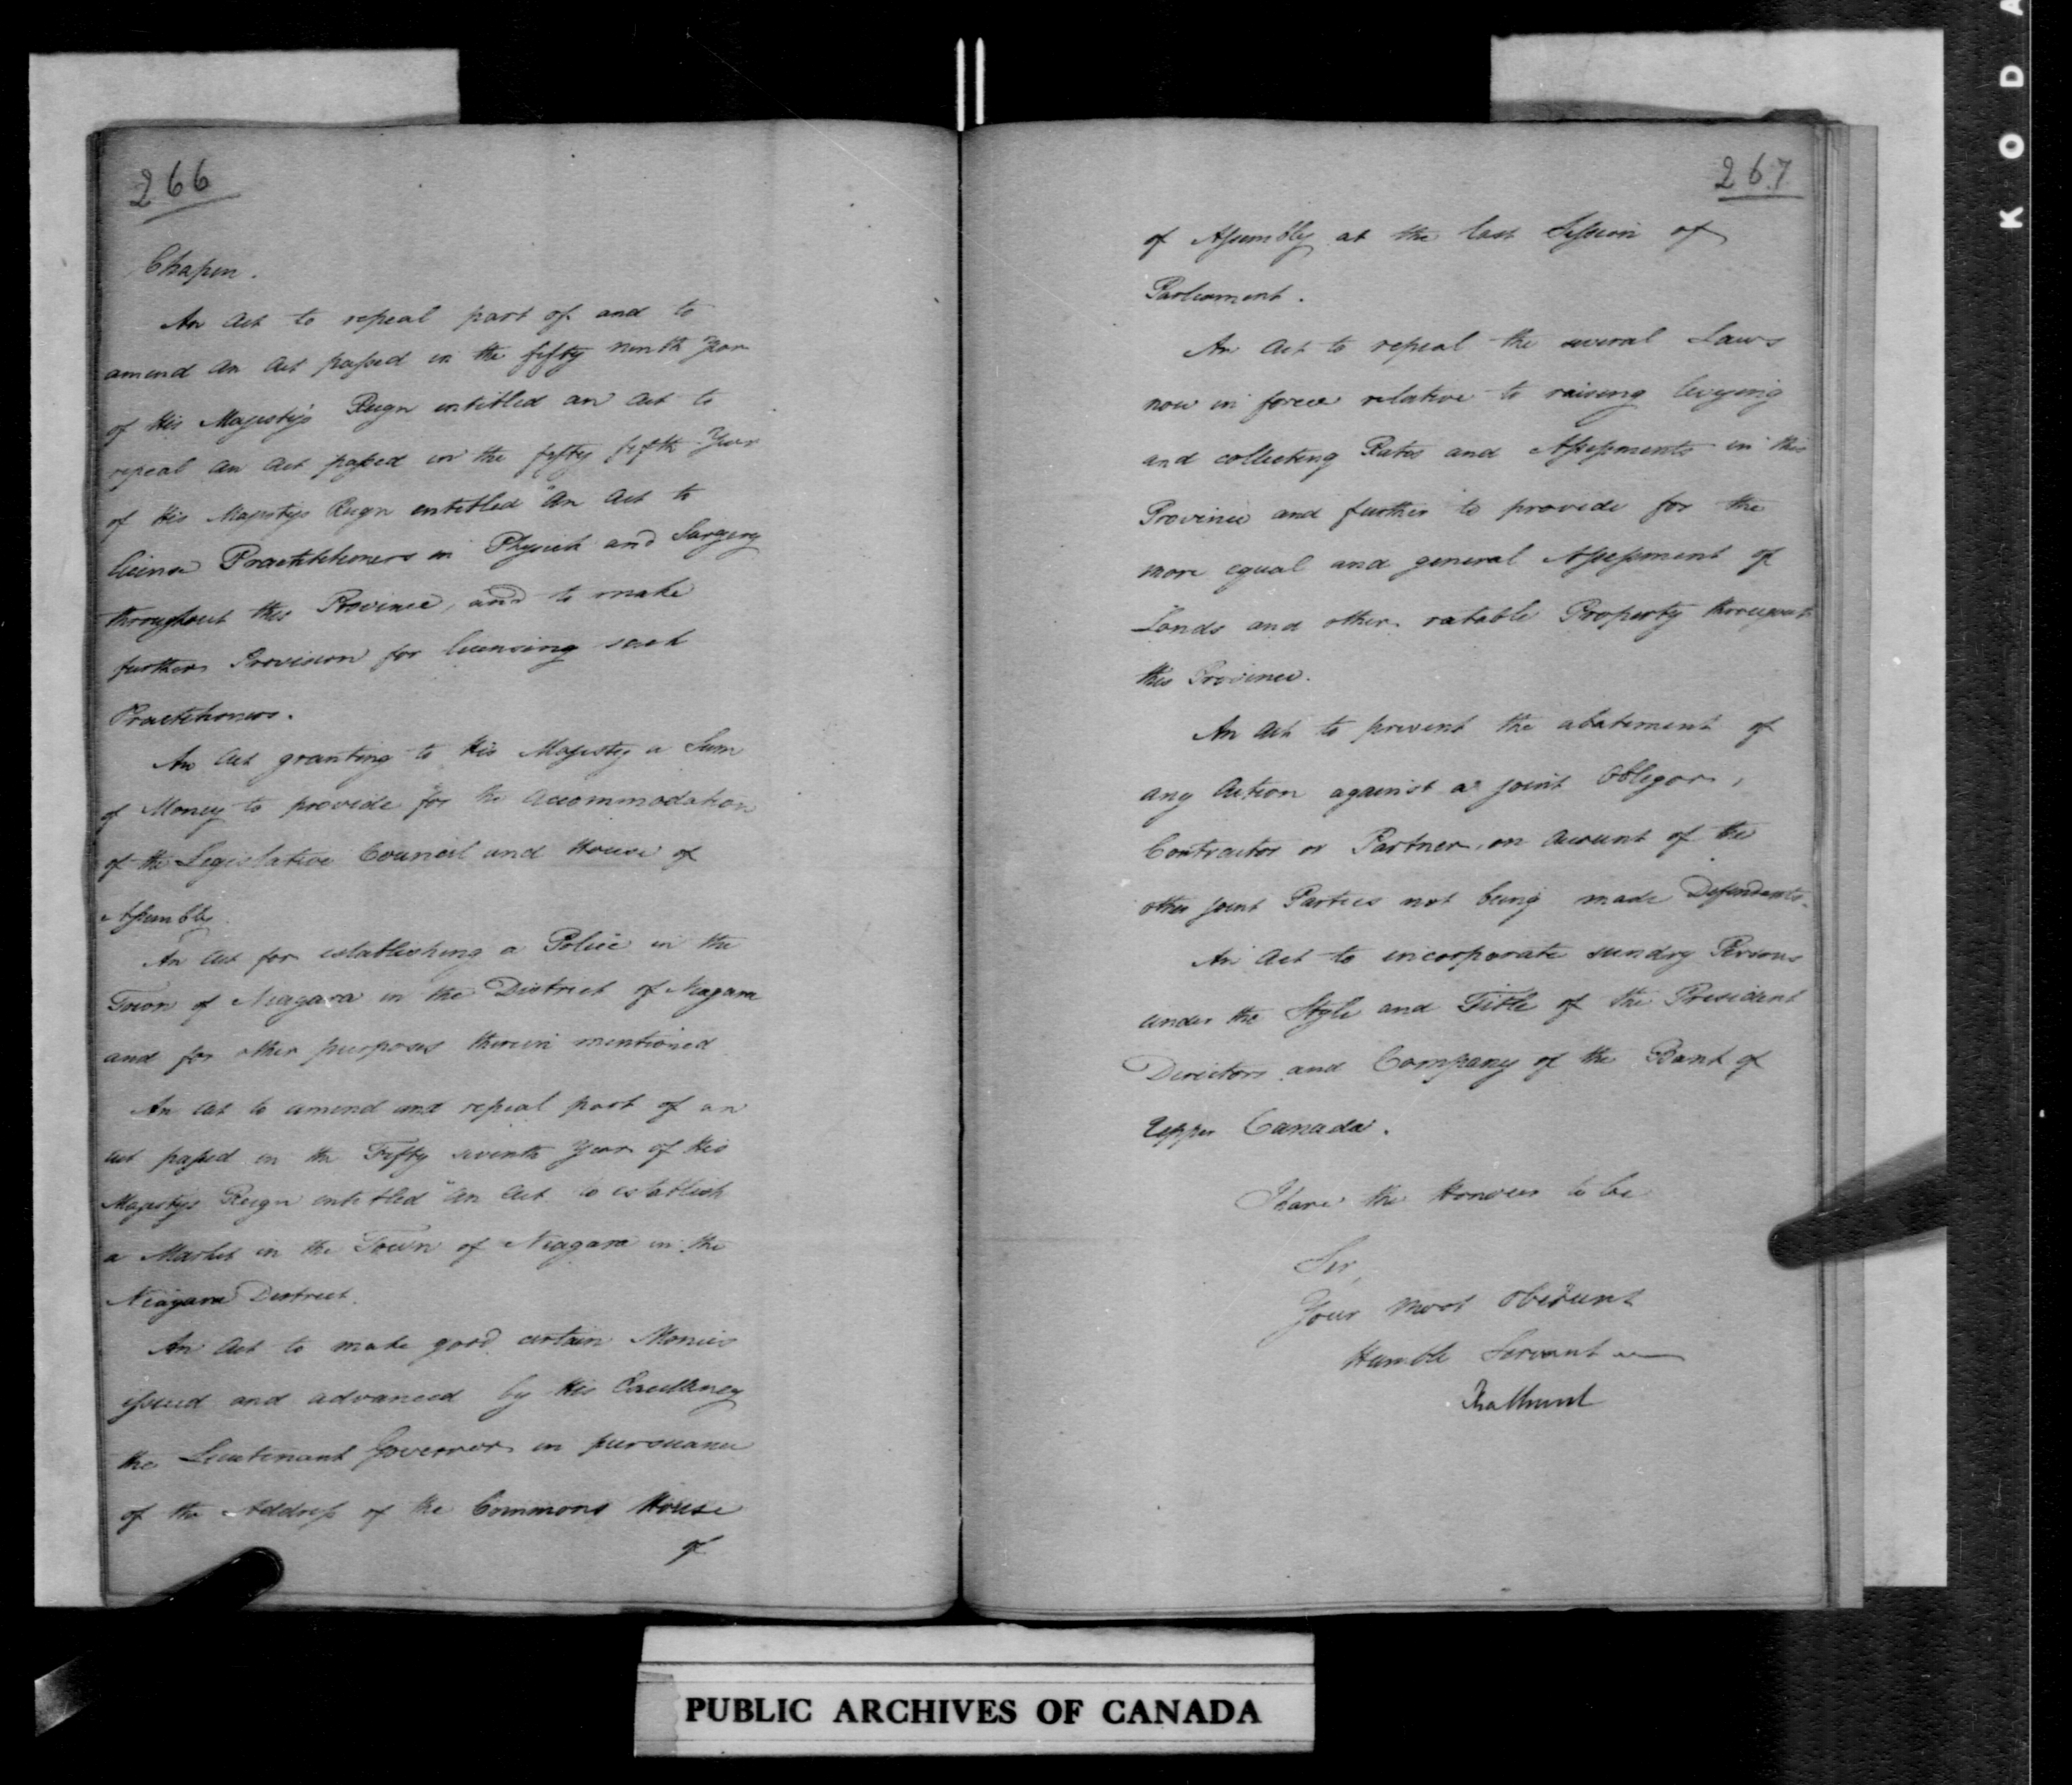 266
Chapin.
An Act to repeal part of and to
amend an Act passed in the fifty ninth Year
of His Majesty's Reign entitled an Act to
repeal an Act passed in the fifty fifth Year
of His Majestys Reign entitled "An Act to
license Practitioners in Physick and Surgery
throughout this Province, and to make
further Provision for licensing such
Practitioners.
An Act granting to His Majesty a Sum
of Money to provide for the Accommodation
of the Legislative Council and House of
Assembly.
An Act for establishing a Police in the
Town of Niagara in the District of Niagara
and for other purposes therein mentioned
An Act to amend and repeal part of an
Act passed in the Fifty seventh Year of His
Majestys Reign entitled "An Act to establish
a Market in the Town of Niagara in the
Niagara District.
An Act to make good certain Monies
issued and advanced by His Excellency
the Lieutenant Governor in pursuance
of the Address of the Commons House
of
267
of Assembly at the last Session of
Parliament.
An Act to repeal the several Laws
now in force relative to raising levying
and collecting Rates and Assessments in this
Province and further to provide for the
more equal and general Assessment of
Lands and other ratable Property througout
this Province.
An Act to prevent the abatement of
any Action against a joint Obligor,
Contractor or Partner, on Account of the
other joint Parties not being made Defendants.
An Act to incorporate sundry Persons
under the Style and Title of the President
Directors and Company of the Bank of
Upper Canada.
I have the Honour to be
Sir,
Your most obedient
Humble Servant
PUBLIC ARCHIVES OF CANADA
KODA